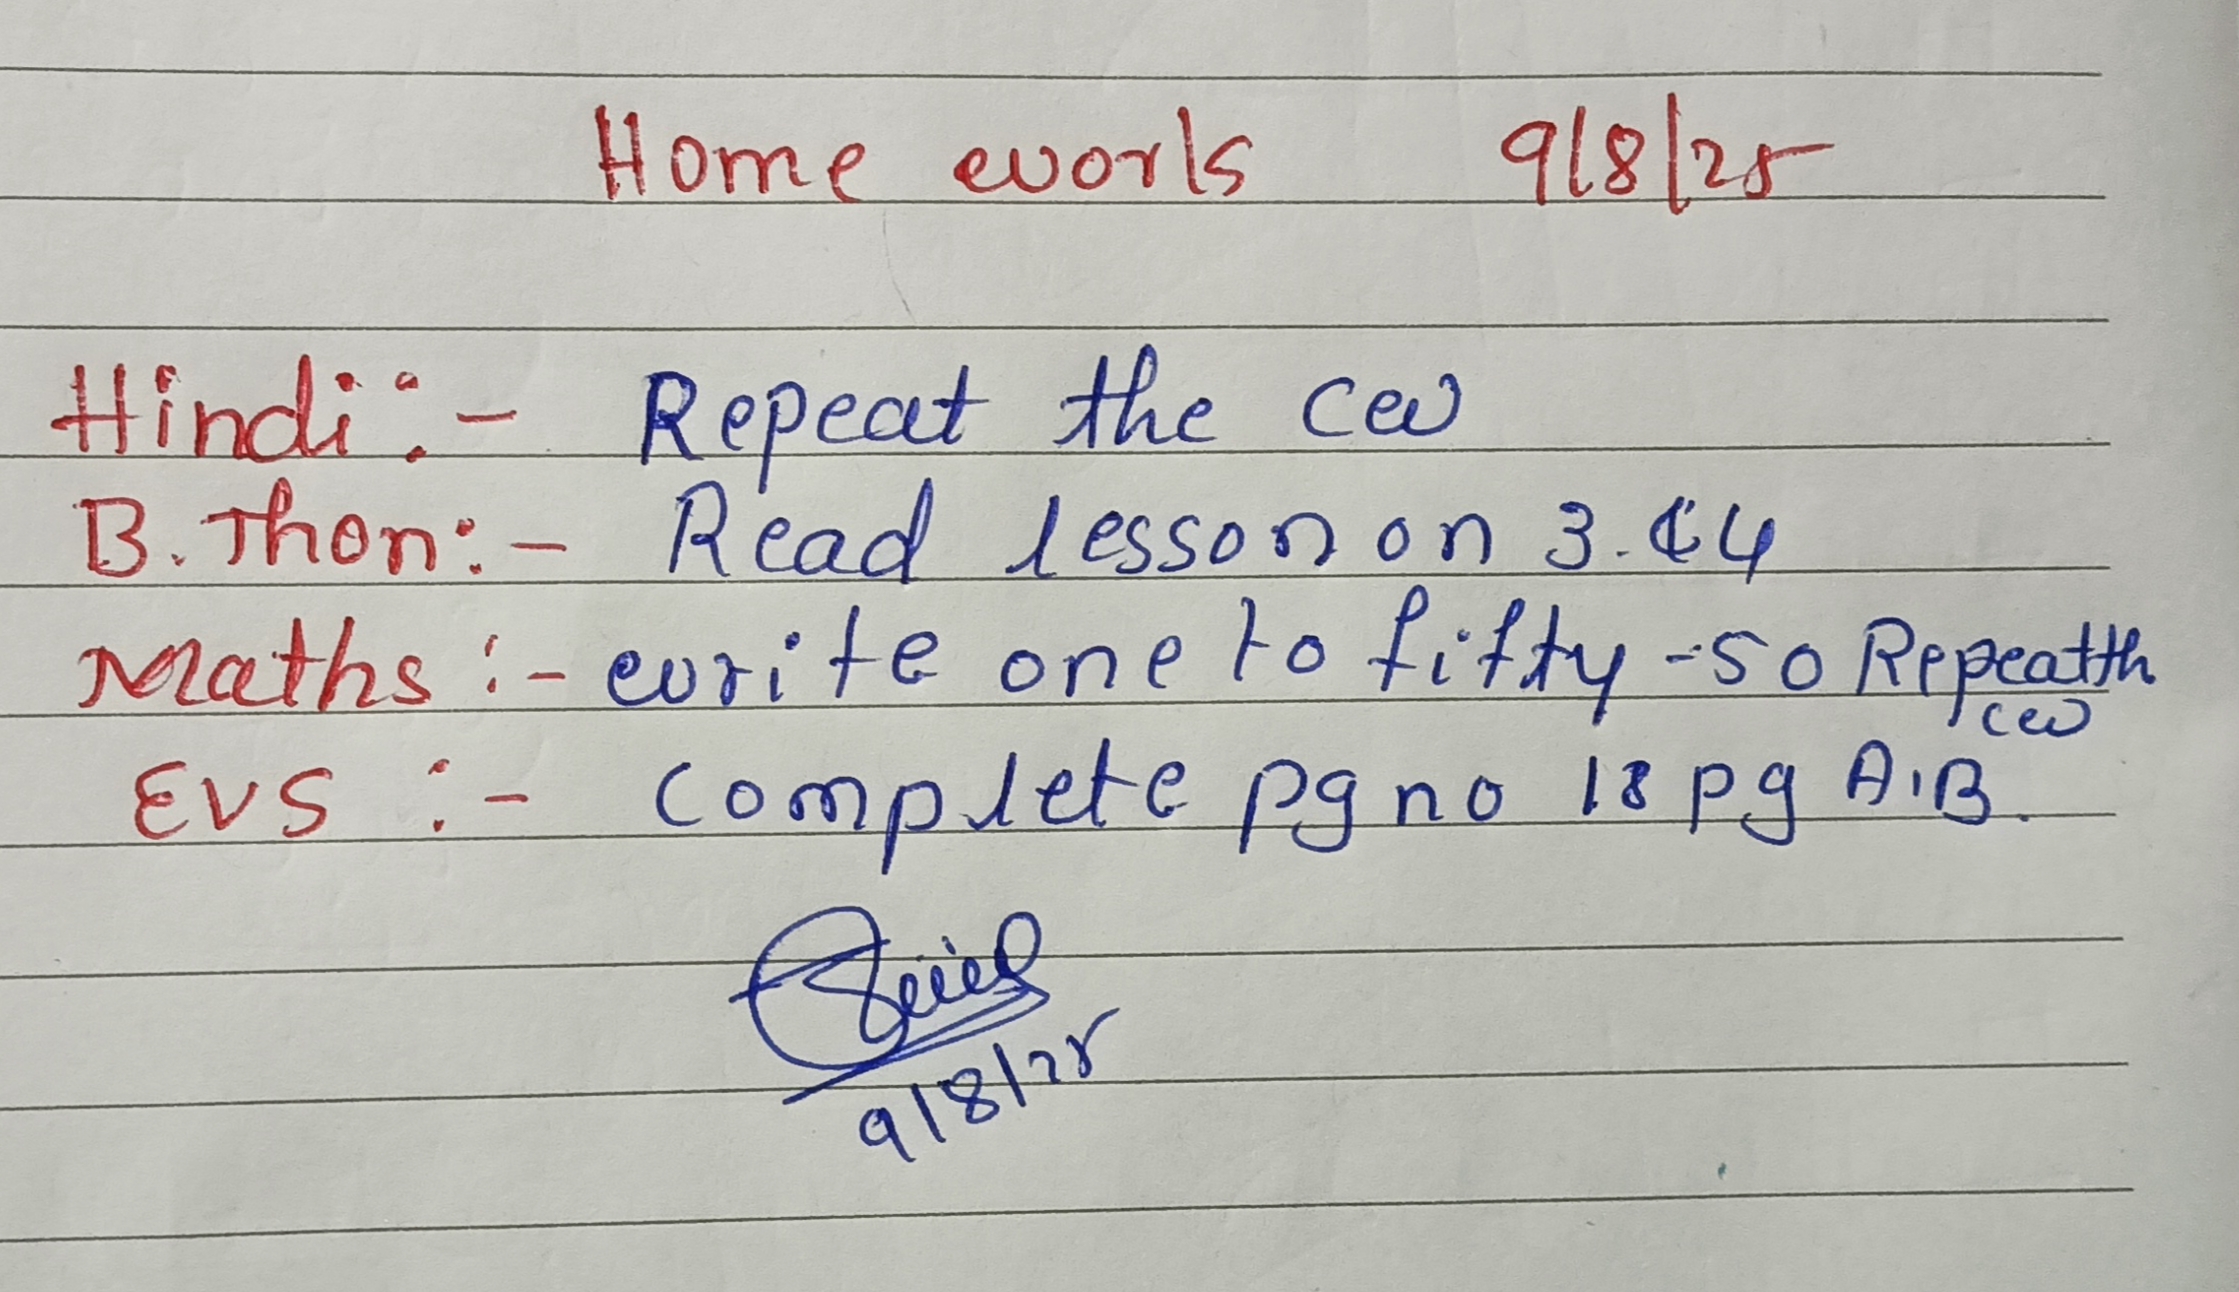 Home work 9/8/25
Hindi :- Repeat the cw
B. Thon :- Read lesson on 3. & 4
Maths :- write one to fifty - 50 Repeat th
cw
EVS :- complete pg no 18 pg A.B.
9/8/25